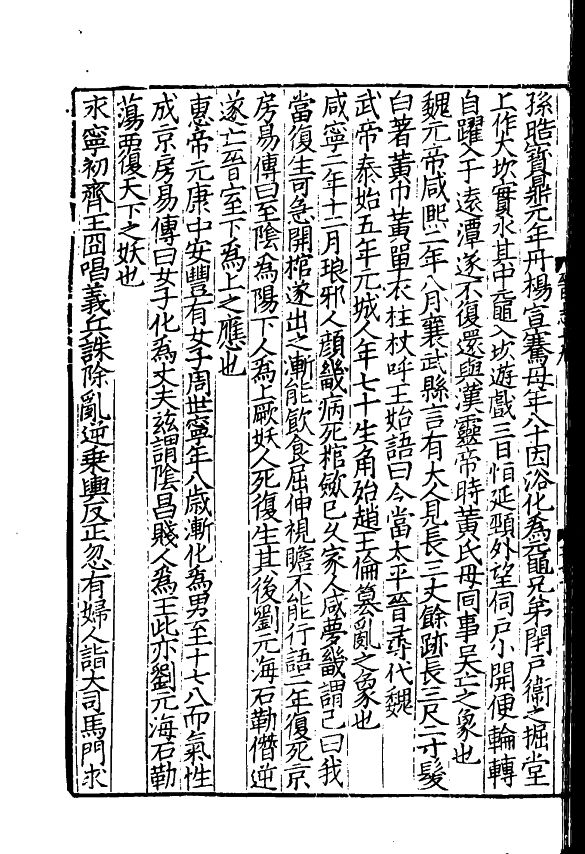 孫晧寶鼎元年丹楊宣騫母年八十因浴化為黿兄弟閉戶衞之掘堂
上作大坎實水其中黿入坎遊戲三日恒延頸外望伺戶小開便輪轉
自躍入于遠潭遂不復還與漢靈帝時黃氏母同事吴亡之象也
魏元帝咸熙二年八月襄武縣言有大人見長三丈餘跡長三尺二寸髮
白著黃巾黃單衣柱杖呼王始語曰今當太平晉尋代魏
武帝泰始五年元城人年七十生角殆趙王倫篡亂之象也
咸寧二年十二月琅邪人顔畿病死棺歛已久家人咸夢畿謂己曰我
當復生可急開棺遂出之漸能飲食屈伸視瞻不能行語二年復死京
房易傳曰至陰為陽下人為上厥妖人死復生其後劉元海石勒僭逆
遂亡晉室下為上之應也
惠帝元康中安豐有女子周世寧年八歲漸化為男至十七八而氣性
成京房易傳曰女子化為丈夫兹謂陰昌賤人為王此亦劉元海石勒
蕩覆天下之妖也
永寧初齊王冏唱義兵誅除亂逆乘輿反正忽有婦人詣大司馬門求